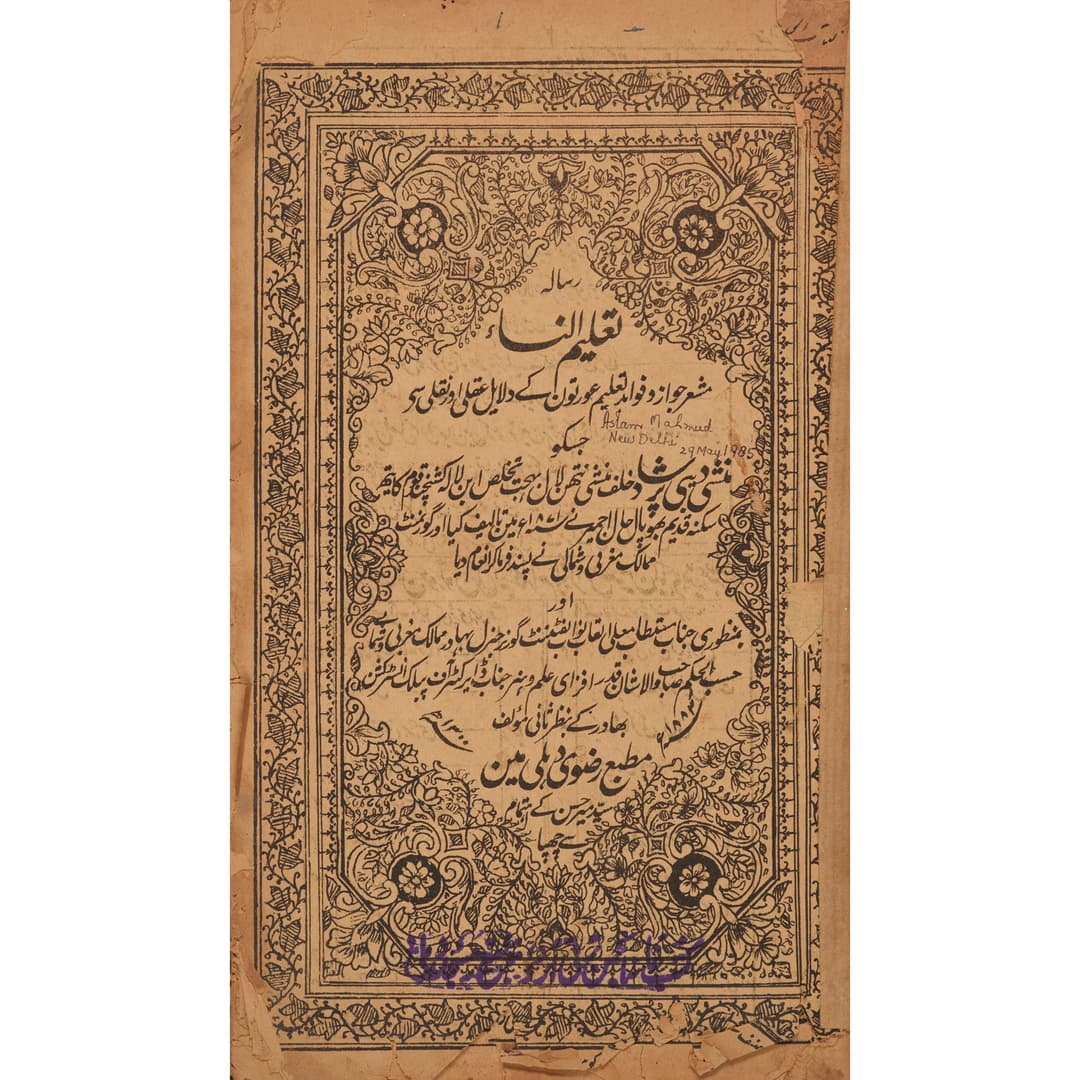 رسالہ
تعلیم النساء
مشعر جواز و فوائد تعلیم عورتون کے دلایل عقلی اور نقلی سی
Aslam Mahmud
New Delhi
29 May 1985
جسکو
منشی دیبی پرشاد خلف منشی نتھن لال بہجت تخلص ابن لالہ کشنچند قوم کایتھ
سکنہ قدیم بھوپال حال اجمیر نے ۱۸۷۱ء مین تالیف کیا اور گورنمنٹ
ممالک مغربی و شمالی نے پسند فرما کر انعام دیا
اور
بمنظوری جناب مستطاب معلی القاب نواب لفٹیننٹ گورنر جنرل بہادر ممالک مغربی و شمالی
حسب الحکم صاحب والاشان قدر افزای علم و ہنر جناب ڈایرکٹر آف پبلک انسٹرکشن
بھادر کے بنظر ثانی مؤلف
۱۸۸۳ء ۱۳۰۰ھ
مطبع رضوی دہلی مین
سید میر حسن کے اہتمام
سے چھپا